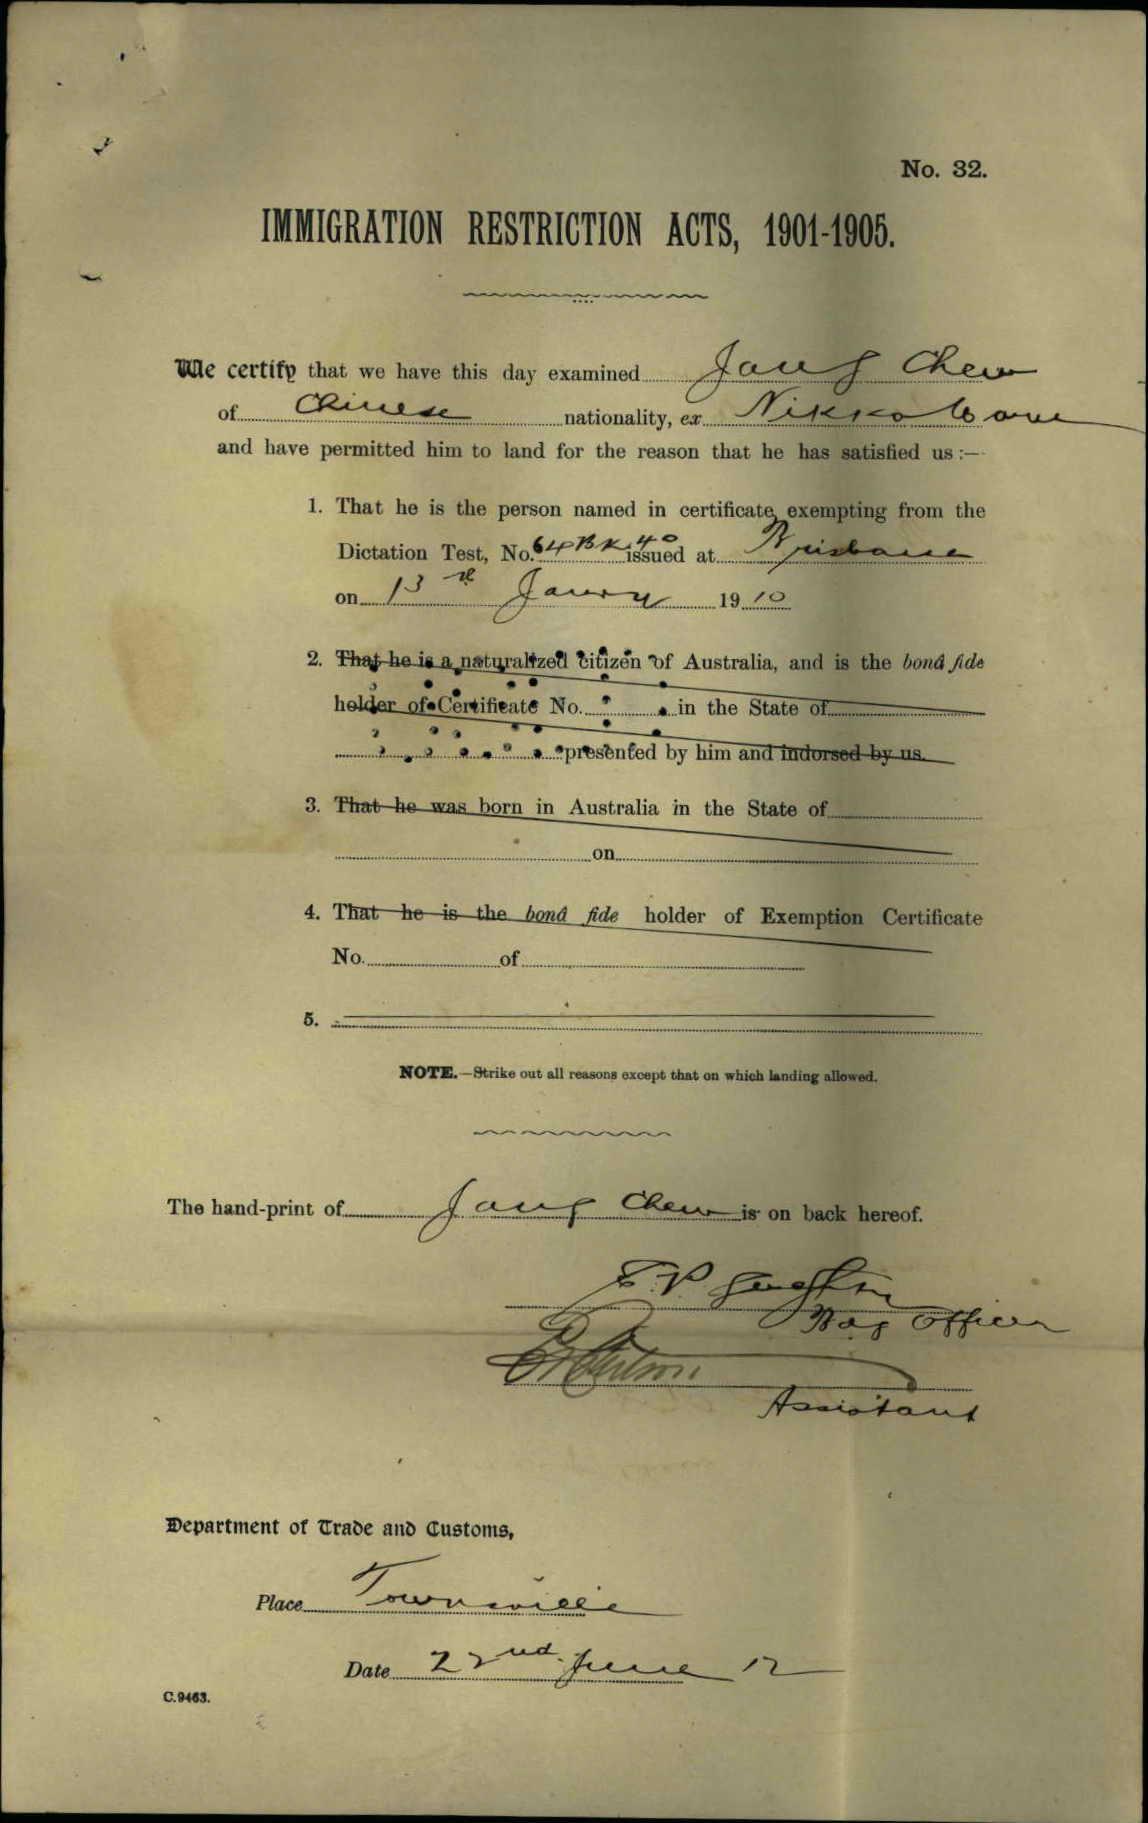 No. 32.
IMMIGRATION RESTRICTION ACTS, 1901-1905.
We certify that we have this day examined Jang Chew
of Chinese nationality, ex Nikko Maru
and have permitted him to land for the reason that he has satisfied us :—
1. That he is the person named in certificate exempting from the
Dictation Test, No. 64 BK 40 issued at Brisbane
on 13th Jan'y 1910
2. That he is a naturalized citizen of Australia, and is the bonâ fide
holder of Certificate No. in the State of
presented by him and indorsed by us.
3. That he was born in Australia in the State of
on
4. That he is the bonâ fide holder of Exemption Certificate
No. of
5.
NOTE.—Strike out all reasons except that on which landing allowed.
The hand-print of Jang Chew is on back hereof.
Officer
Assistant
Department of Trade and Customs,
Place Townsville
Date 22nd June 12
C.9463.